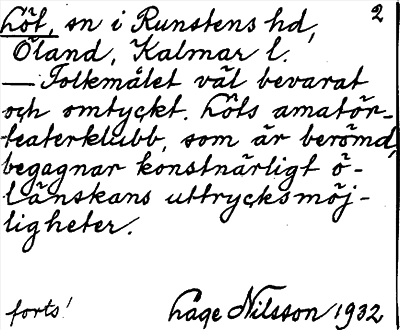 Löt, sn i Runstens hd, 2
Öland, Kalmar l.
— Folkmålet väl bevarat
och omtyckt. Löts amatör-
teaterklubb, som är berömd,
begagnar konstnärligt ö-
länskans uttrycksmöj-
ligheter.
forts! Lage Nilsson 1932